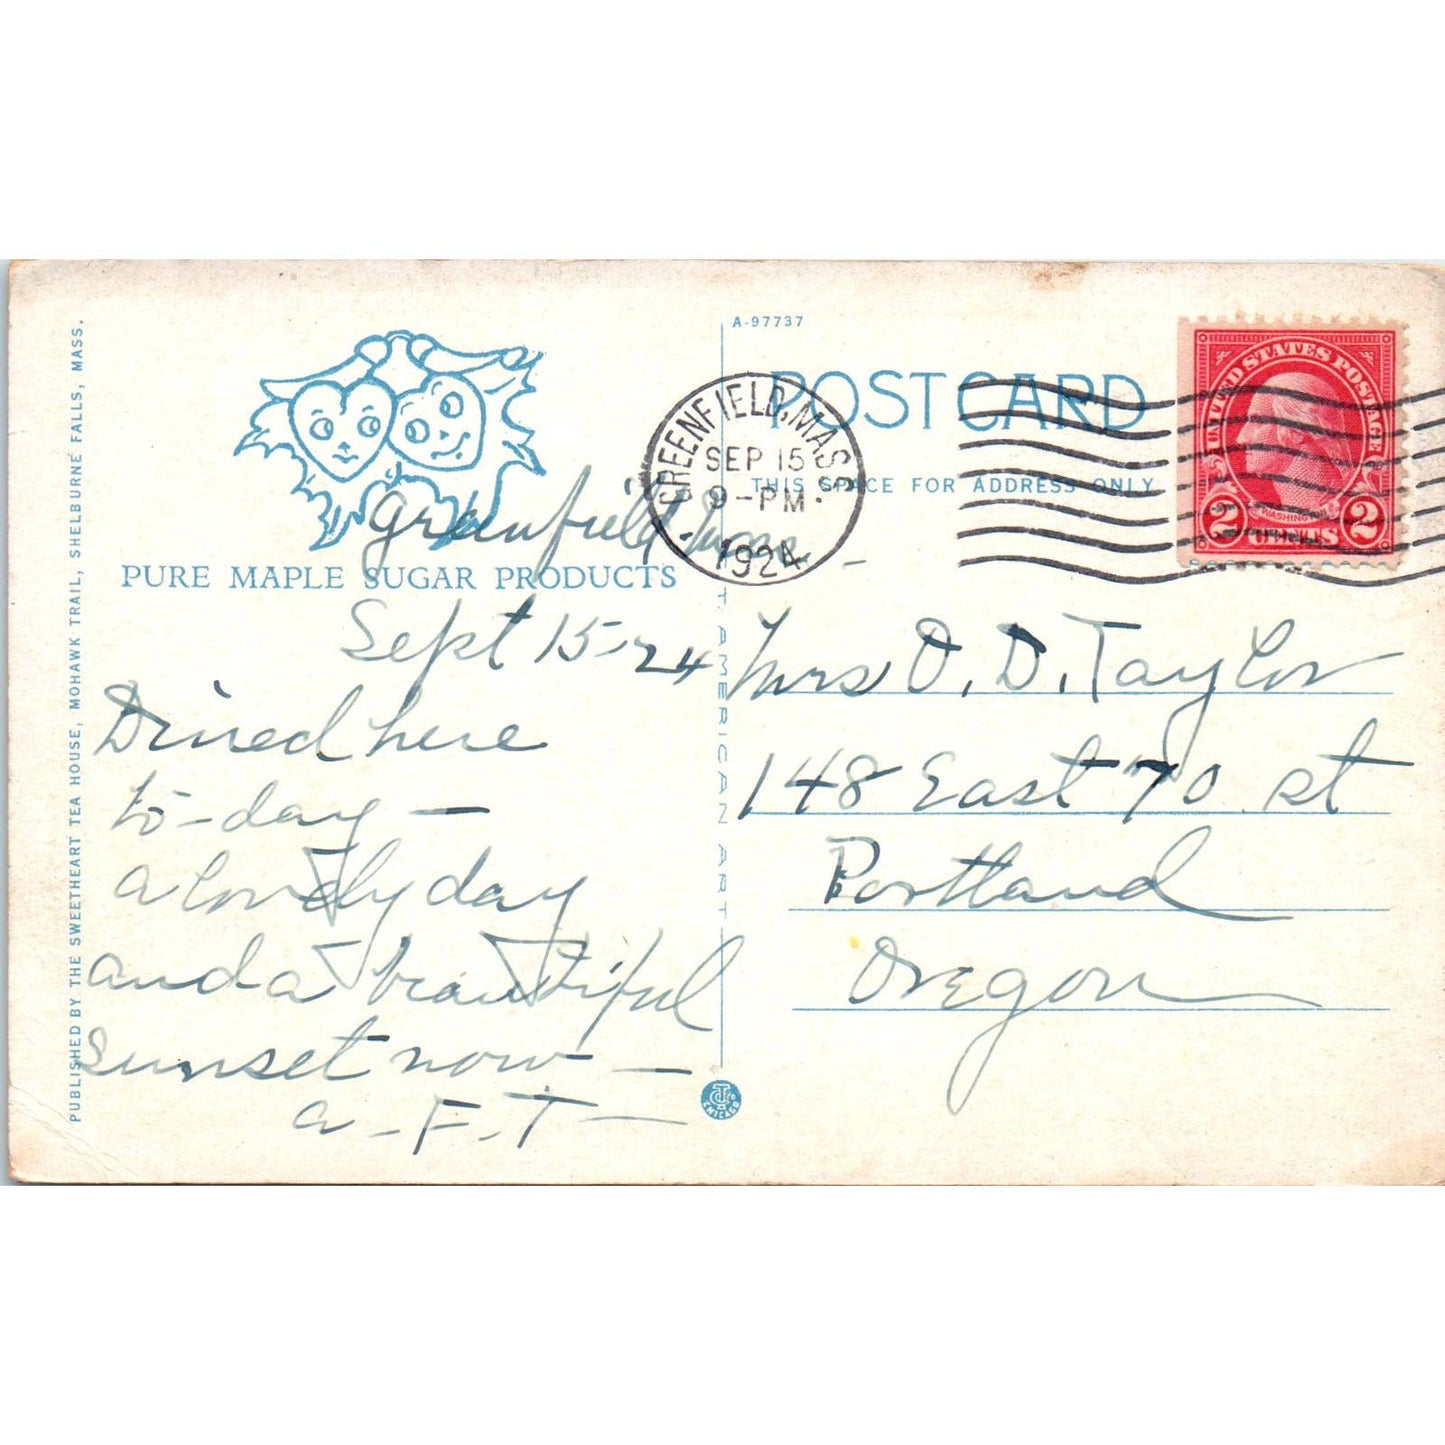 PUBLISHED BY THE SWEETHEART TEA HOUSE, MOHAWK TRAIL, SHELBURNE FALLS, MASS.
PURE MAPLE SUGAR PRODUCTS
Greenfield, Mass. -
Sept 15-24
Dined here
to-day —
a lovely day
and a beautiful
sunset now —
a-F-T—
A-97737
POST CARD
THIS SPACE FOR ADDRESS ONLY
GREENFIELD, MASS.
SEP 15
9-PM
1924
UNITED STATES POSTAGE
WASHINGTON
2 CENTS 2
T AMERICAN ART
CHICAGO
Mrs O. D. Taylor
148 East 70 st
Portland
Oregon